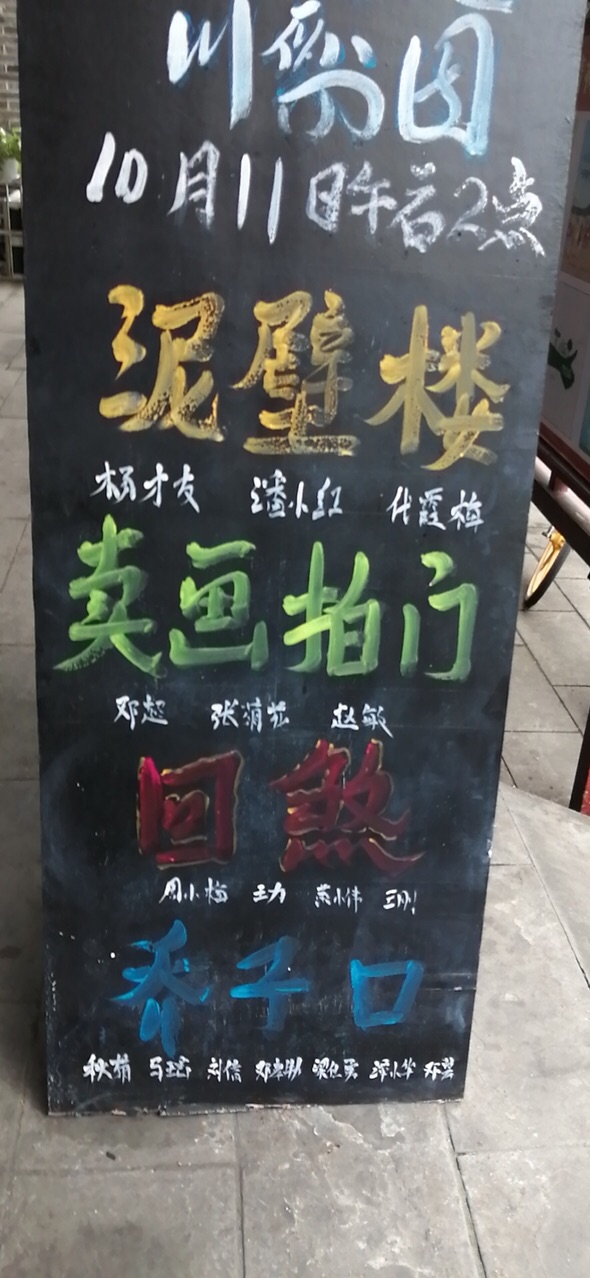 川剧团
10月11日午后2点
泥壁楼
杨才友 潘小红 代霞梅
卖画拍门
邓超 张菊花 赵敏
回煞
周小梅 王力 小伟 王刚
乔子口
秋菊 马 刘信